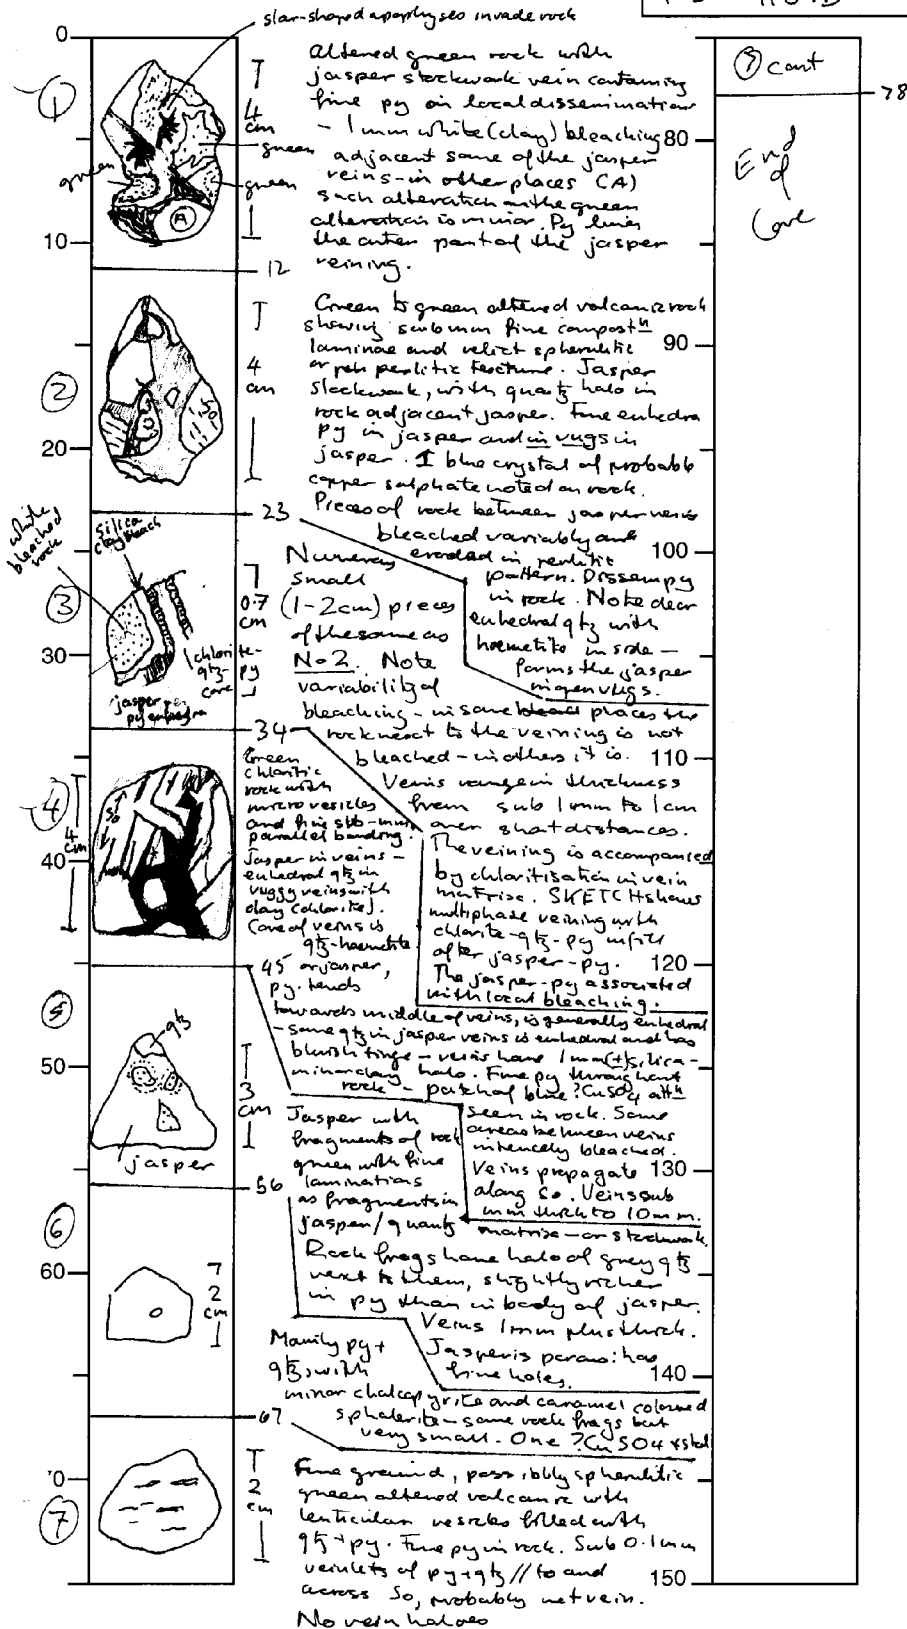 star-shaped apophyses invade rock
0
①
T
4
cm
green
green
green
A
10
12
Altered green rock with
jasper stockwork vein containing
fine py in local dissemination
- 1mm white (clay) bleaching
adjacent some of the jasper
veins - in other places (A)
such alteration in the green
alteration is minor. Py lines
the outer part of the jasper
veining.
②
4
cm
So
20
23
Green to green altered volcanic rock
showing submm fine compost<sup>n</sup>
laminae and relict spherulitic
or perlitic texture. Jasper
stockwork, with quartz halo in
rock adjacent jasper. Fine euhedra
py in jasper and in vugs in
jasper. 1 blue crystal of probable
copper sulphate noted on rock.
Pieces of rock between jasper veins
bleached variably and
eroded in perlitic
pattern. Dissem py
in rock. Note clear
euhedral qtz with
haematite inside -
forms the jasper
in open vugs.
white
bleached
rock
silica
clay bleach
③
0.7
cm
30
chlorite-
qtz-py
core
jasper
py euhedra
34
Numerous
small
(1-2cm) pieces
of the same as
No 2. Note
variability of
bleaching - in some places the
rock next to the veining is not
bleached - in others it is.
Veins range in thickness
from sub 1mm to 1cm
over short distances.
The veining is accompanied
by chloritisation in vein
matrix. SKETCH shows
multiphase veining with
chlorite-qtz-py infill
after jasper-py.
The jasper-py associated
with local bleaching.
④
4
cm
So
40
45
Green
chloritic
rock with
micro vesicles
and fine sub-mm
parallel banding.
Jasper in veins -
euhedral qtz in
vuggy veins with
clay (chlorite).
Core of veins is
qtz-haematite
or jasper,
py. tends
towards middle of veins, is generally euhedral
- some qtz in jasper veins is euhedral and has
bluish tinge - veins have 1mm(±) silica-
minor clay halo. Fine py throughout
rock - patch of blue ?CuSO4 alt<sup>n</sup>
seen in rock. Some
areas between veins
intensely bleached.
Veins propagate
along So. Veins sub
mm thick to 10mm.
⑤
qtz
50
3
cm
jasper
56
Jasper with
fragments of rock
green with fine
laminations
as fragments in
jasper/quartz
matrix - or stockwork.
Rock frags have halo of grey qtz
next to them, slightly richer
in py than in body of jasper.
Veins 1mm plus thick.
Jasper is porous: has
fine holes.
⑥
60
2
cm
67
Mainly py +
qtz, with
minor chalcopyrite and caramel coloured
sphalerite - some rock frags but
very small. One ?CuSO4 xstal
70
⑦
2
cm
Fine ground, possibly spherulitic
green altered volcanic with
lenticular vesicles filled with
qtz + py. Fine py in rock. Sub 0.1mm
veinlets of py+qtz // to and
across So, probably net vein.
No vein haloes
⑦ cont
78
80
End
of
Core
90
100
110
120
130
140
150